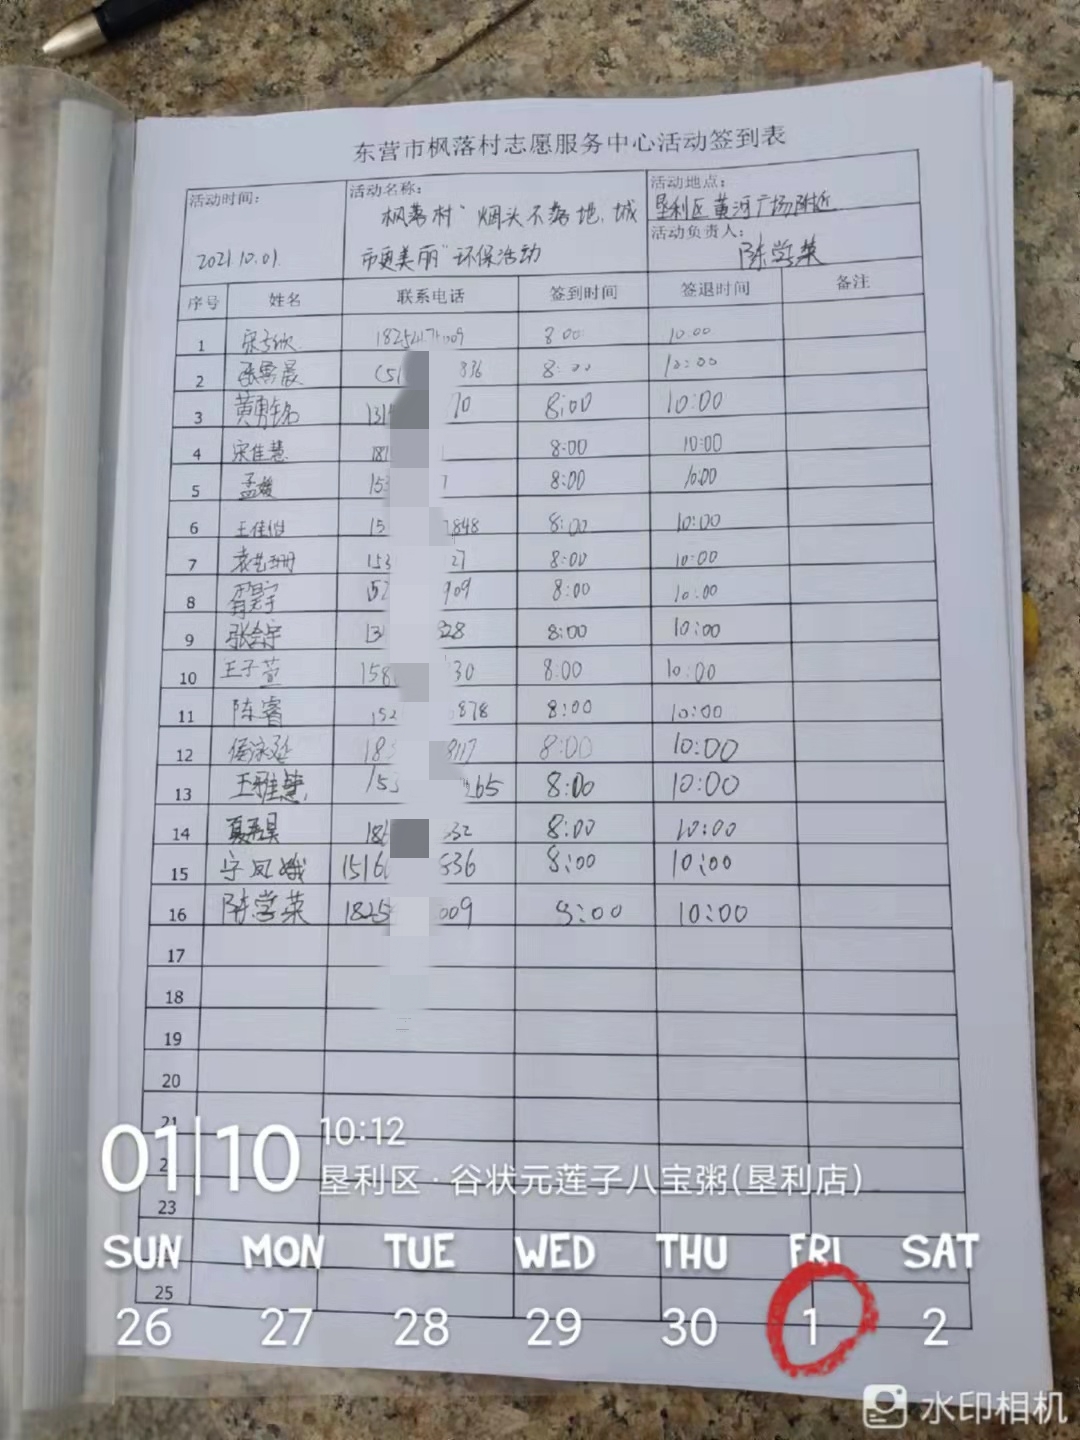 东营市枫落村志愿服务中心活动签到表
活动时间: 活动名称: 活动地点:
枫落村"烟头不落地,城 垦利区黄河广场附近
2021.10.01 市更美丽"环保活动 活动负责人: 陈学荣
序号 姓名 联系电话 签到时间 签退时间 备注
1 8:00 10:00
2 836 8:00 10:00
3 黄勇铭 131 70 8:00 10:00
4 宋佳慧 181 8:00 10:00
5 孟媛 153 7 8:00 10:00
6 15 7848 8:00 10:00
7 袁艺珊 153 27 8:00 10:00
8 152 909 8:00 10:00
9 13 928 8:00 10:00
10 王子萱 158 30 8:00 10:00
11 陈睿 152 878 8:00 10:00
12 18 8117 8:00 10:00
13 王雅慧 153 265 8:00 10:00
14 18 532 8:00 10:00
15 宁凤娥 1516 836 8:00 10:00
16 陈学荣 1825 009 8:00 10:00
17
18
19
20
21
2
23
25
01|10 10:12
垦利区·谷状元莲子八宝粥(垦利店)
SUN MON TUE WED THU FRI SAT
26 27 28 29 30 1 2
水印相机